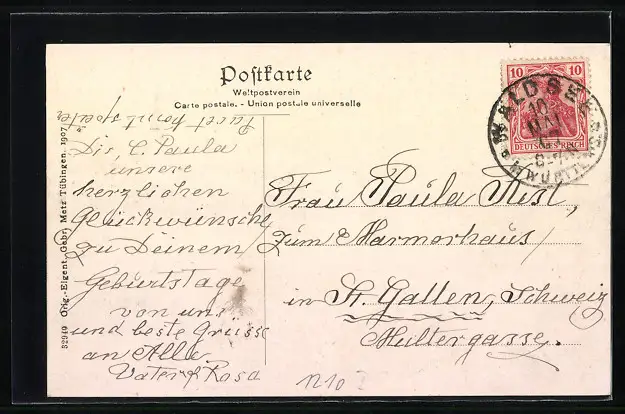 Postkarte
Weltpostverein
Carte postale. - Union postale universelle
10 10
DEUTSCHES REICH
WALDSEE
10
MAI
07
Dir, l. Paula
unsere
herzlichen
Glückwünsche
zu Deinem
Geburtstage
von uns
und beste Grüsse
an Alle.
Vater & Rosa
Frau Paula
zum Marmorhaus,
in St. Gallen, Schweiz
Multergasse.
32949 Orig.-Eigent. Gebr. Metz Tübingen. 1907